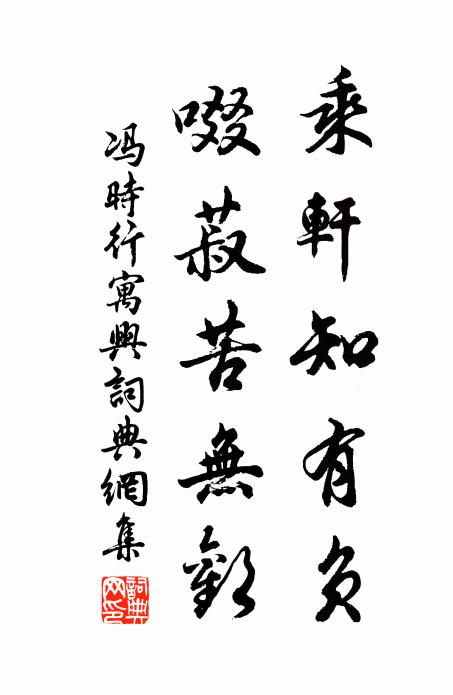 乘軒知有負
啜菽苦無歡
冯時行寓興詞典網集